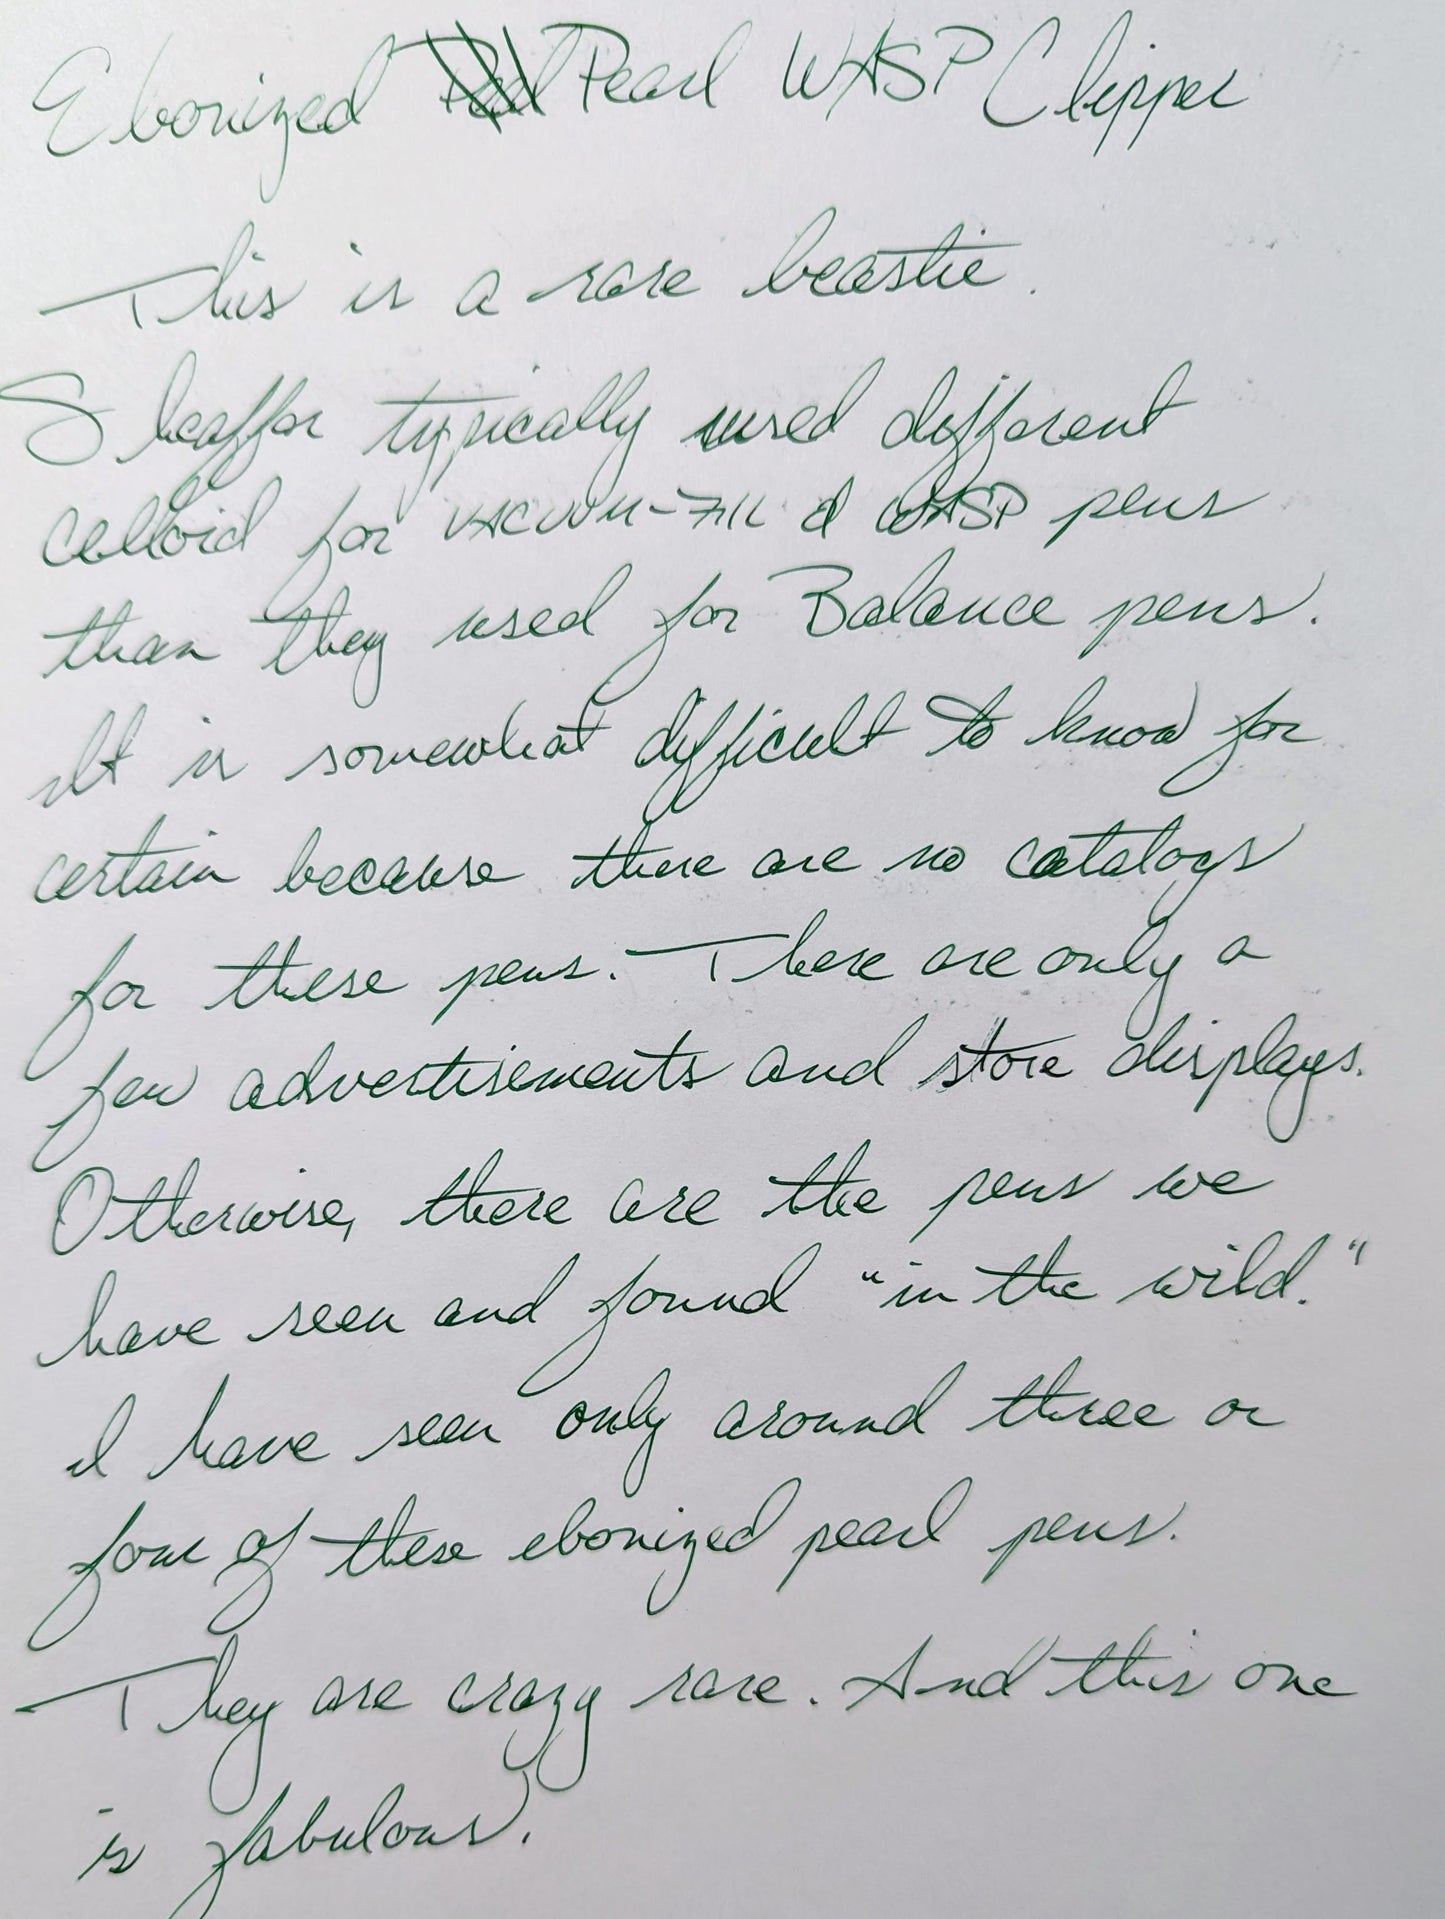 Ebonized Pearl WASP Clipper
This is a rare beastie.
Sheaffer typically used different
celloid for VACUUM-FIL & WASP pens
than they used for Balance pens.
It is somewhat difficult to know for
certain because there are no catalogs
for these pens. There are only a
few advertisements and store displays.
Otherwise, there are the pens we
have seen and found "in the wild."
I have seen only around three or
four of these ebonized pearl pens.
They are crazy rare. And this one
is fabulous.